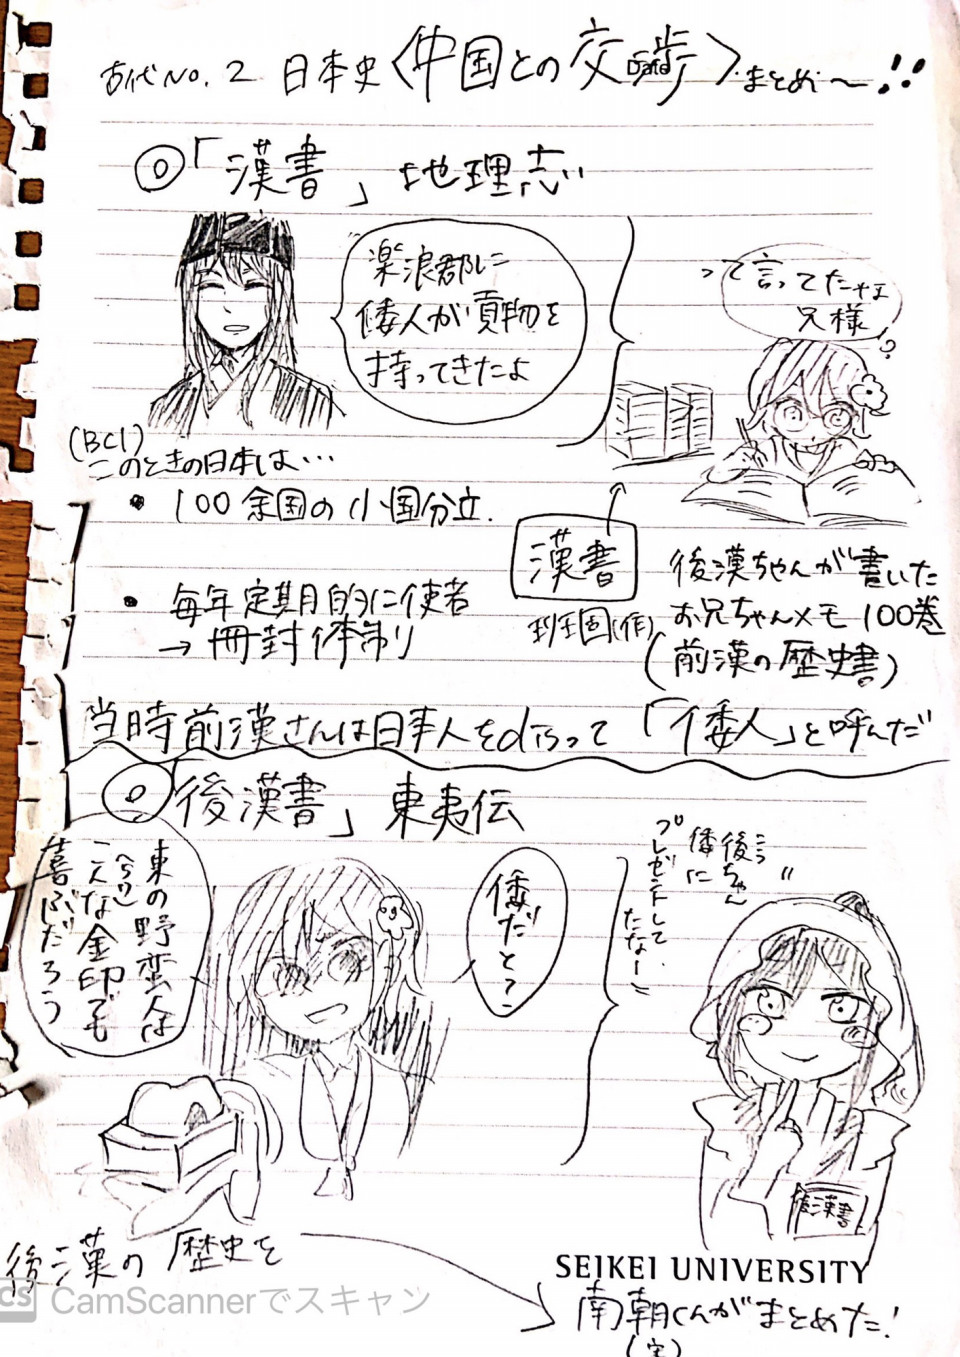 古代No.2 日本史〈中国との交渉〉まとめ〜!!
Date
◎「漢書」地理志
楽浪郡に
倭人が貢物を
持ってきたよ
って言ってたなぁ
兄様
(BC1)
このときの日本は…
• 100余国の小国分立.
• 毎年定期的に使者
→冊封体制り
漢書
班固(作)
後漢ちゃんが書いた
お兄ちゃんメモ100巻
(前漢の歴史書)
当時前漢さんは日本人をdisって「倭人」と呼んだ
◎「後漢書」東夷伝
東の野蛮人は
こんな金印でも
喜ぶだろう
倭だと?
後ちゃん
倭に
プレゼントして
たなー
後漢書
後漢の歴史を
SEIKEI UNIVERSITY
南朝くんがまとめた!
(宋)
CS CamScannerでスキャン